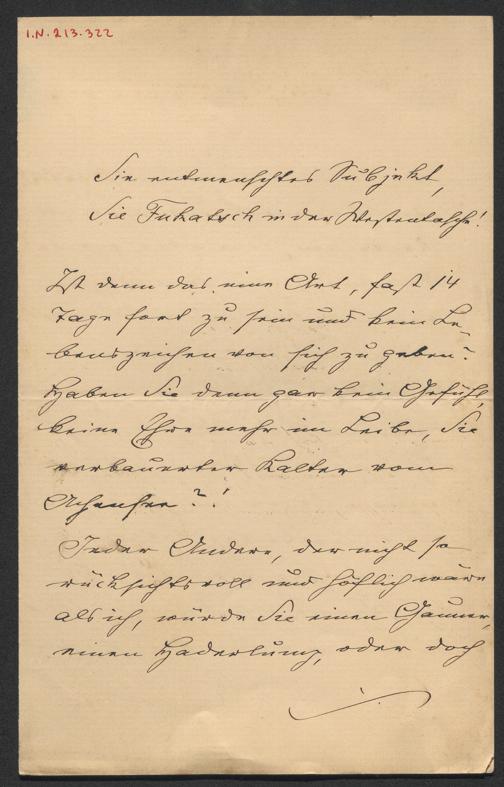 I.N. 213.322
Sie entmenschtes Subjekt,
Sie Fukatsch in der Westentasche!
Ist denn das eine Art, fast 14
Tage fort zu sein und kein Le-
benszeichen von sich zu geben?
Haben Sie denn gar kein Gefühl,
keine Ehre mehr im Leibe, Sie
verbauerter Kalter vom
Achensee?!
Jeder Andere, der nicht so
rücksichtsvoll und höflich wäre
als ich, würde Sie einen Gauner,
einen Haderlump, oder doch